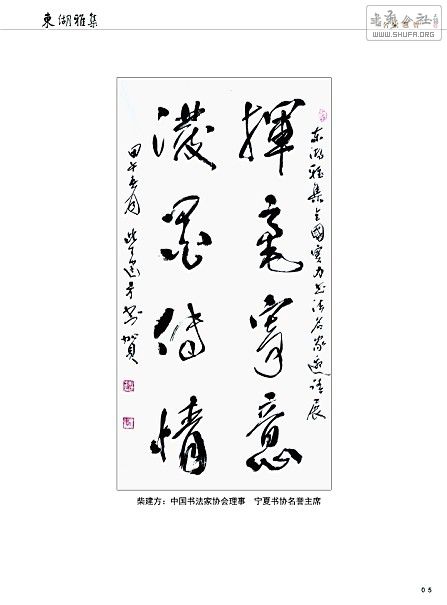 東湖雅集
WWW.SHUFA.ORG
东湖雅集全國實力书法名家邀请展
揮毫寄意
潑墨傳情
甲午春月 柴建方书賀
柴建方：中国书法家协会理事 宁夏书协名誉主席
05